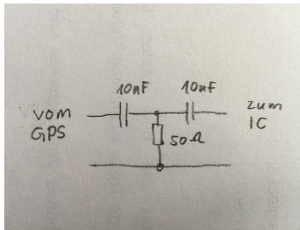 10nF 10nF
vom
GPS
zum
IC
50Ω